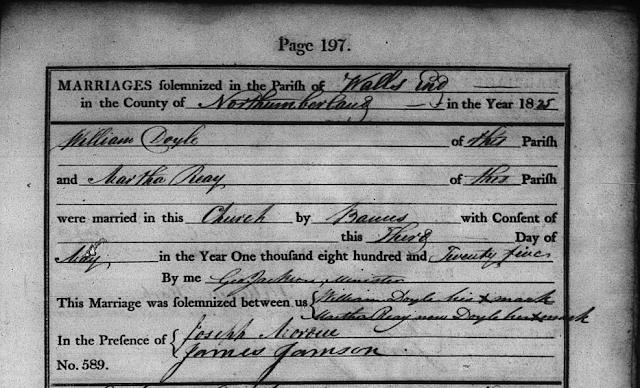 Page 197.
MARRIAGES solemnized in the Parish of Walls End
in the County of Northumberland in the Year 1825
William Doyle of this Parish
and Martha Reay of this Parish
were married in this Church by Banns with Consent of
this Third Day of
May in the Year One thousand eight hundred and Twenty five
By me Geo Jackson, Minister
This Marriage was solemnized between us { William Doyle his x mark
Martha Reay now Doyle her x mark
In the Presence of { Joseph Mordue
James Jamson
No. 589.